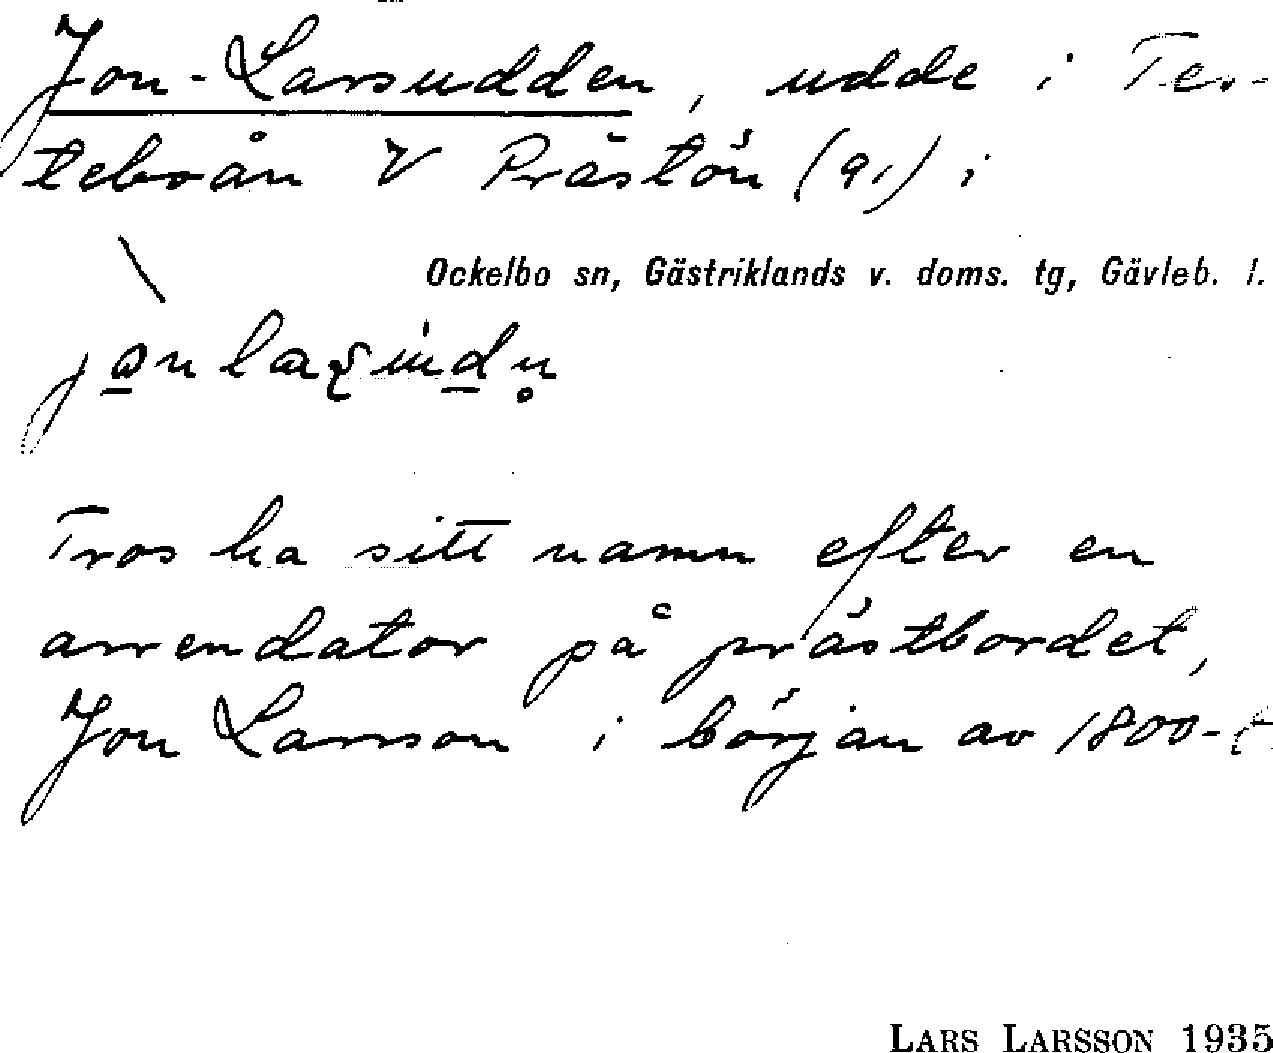 Jon-Larsudden, udde i Tes-
teboån V Prästön (91) i
Ockelbo sn, Gästriklands v. doms. tg, Gävleb. l.
Tros ha sitt namn efter en
arrendator på prästbordet,
Jon Larsson i början av 1800-t
LARS LARSSON 1935